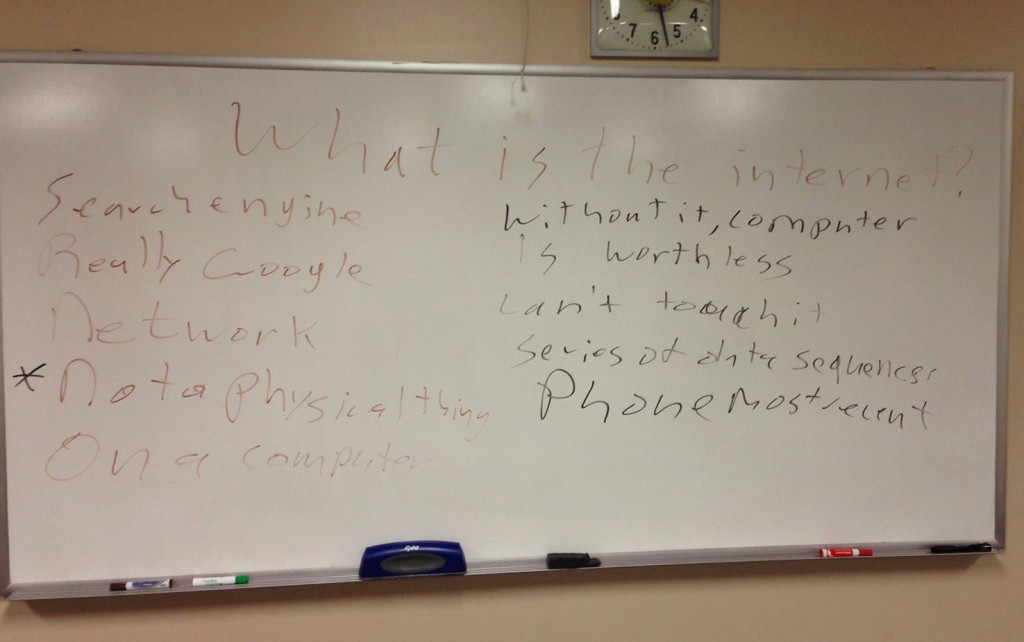 7 6 5 4
What is the internet?
Search engine
Really Google
Network
* Not a physical thing
On a computer
Without it, computer
is worthless
Can't touch it
Series of data sequences
Phone most recent
expo